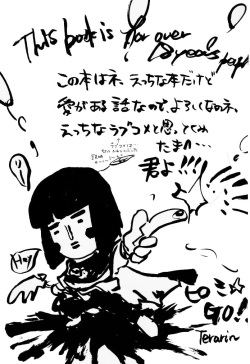 This book is for over 18 years people
この本はネ、えっちな本だけど
愛がある話なので、よろしくなのネ、
えっちなラブコメと思ってくれ
たまハ…
君よ!!!
Hey
ヒロミ☆
GO!!
Terarin